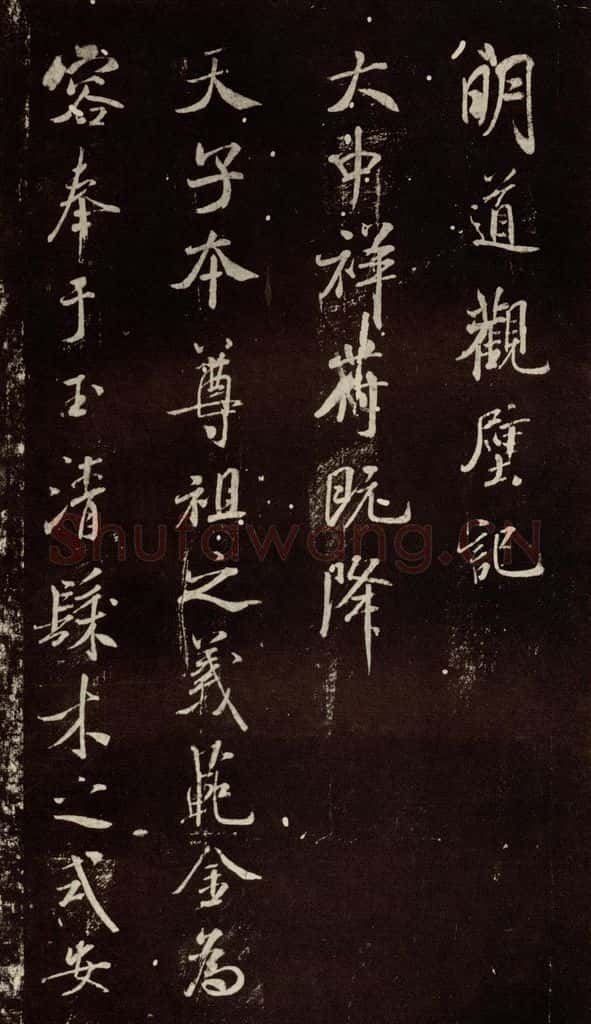 明道觀壁記
大中祥荷既降
天子本尊祖之義範金為
容奉于玉清縣木之式安
Shufawang.CN